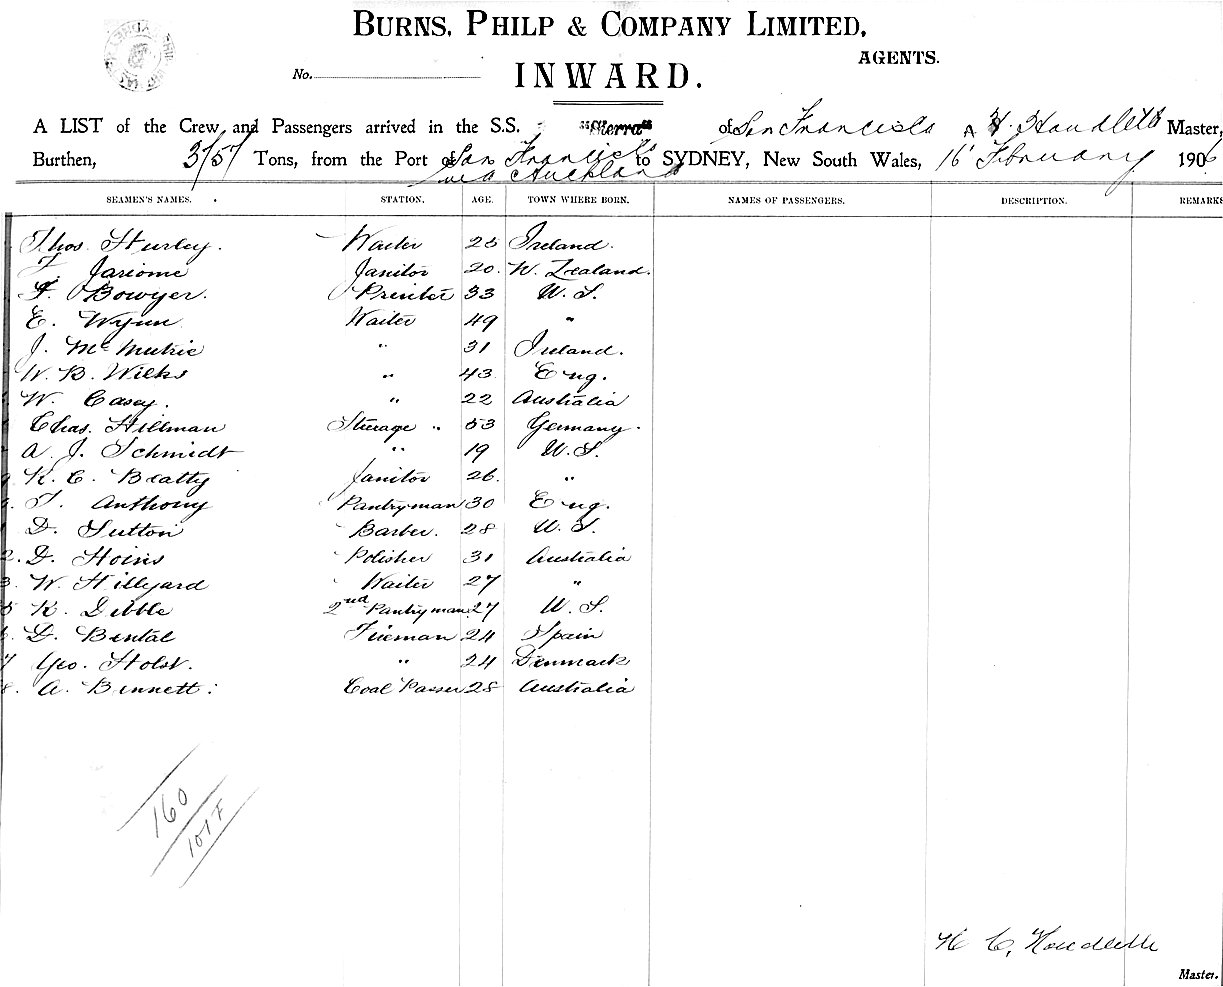 BURNS, PHILP & COMPANY LIMITED,
AGENTS.
No.
INWARD.
A LIST of the Crew and Passengers arrived in the S.S. "Sierra" of San Francisco H. Houdlette Master,
Burthen, 3157 Tons, from the Port of San Francisco to SYDNEY, New South Wales, 16 February 1906
via Auckland
SEAMEN'S NAMES. STATION. AGE. TOWN WHERE BORN. NAMES OF PASSENGERS. DESCRIPTION. REMARKS
Thos. Hurley. Waiter 25 Ireland.
F. Jariome Janitor 20. N. Zealand.
F. Bowyer. Printer 33 U. S.
E. Wynn Waiter 49 "
J. McMutrie " 31 Ireland.
W. B. Wilks " 43 Eng.
W. Casey. " 22 Australia
Chas. Hillman Steerage " 53 Germany.
A. J. Schmidt " 19 U. S.
R. C. Beatty Janitor 26. "
T. Anthony Pantryman 30 Eng.
D. Sutton Barber. 28 U. S.
2. D. Hoins Polisher 31 Australia
3. W. Hillyard Waiter 27 "
5 R. Dibble 2nd Pantryman 27 U. S.
6. D. Bental Fireman 24 Spain
7 Geo. Holst. " 24 Denmark
8. A. Bennett. Coal Passer 28 Australia
160
101 F
H. C. Houdlette
Master.